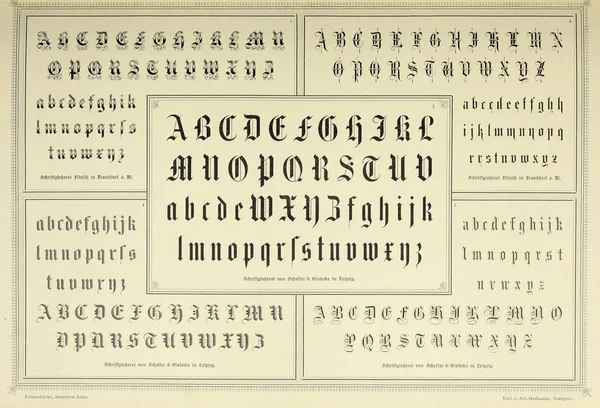 ABCDEFGHIJKLMN
OPQRSTUVWXYZ
abcdefghijk
lmnopqrſs
tuvwxyz
Schriftgießerei Flinsch in Frankfurt a. M.
ABCDEFGHIJKLMN
OPQRSTUVWXYZ
abccdeefghh
ijklmmnnopq
rrstuvwxyz
Schriftgießerei Flinsch in Frankfurt a. M.
ABCDEFGHIJKL
MNOPQRSTUV
abcdeWXYZfghijk
lmnopqrſstuvwxyz
Schriftgießerei von Schelter & Giesecke in Leipzig.
abcdefghijk
lmnopqrſs
tuvwxyz
ABCDEFGHIJKLMN
OPQRSTUVWXYZ
Schriftgießerei von Schelter & Giesecke in Leipzig.
abcdefghijk
lmnopqrst
uvwxyz
ABCDEFGHIJKLMNO
PQRSTUVWXYZ
Schriftgießerei von Schelter & Giesecke in Leipzig.
Petzendorfer, Schriften-Atlas.
Verl. v. Jul. Hoffmann, Stuttgart.